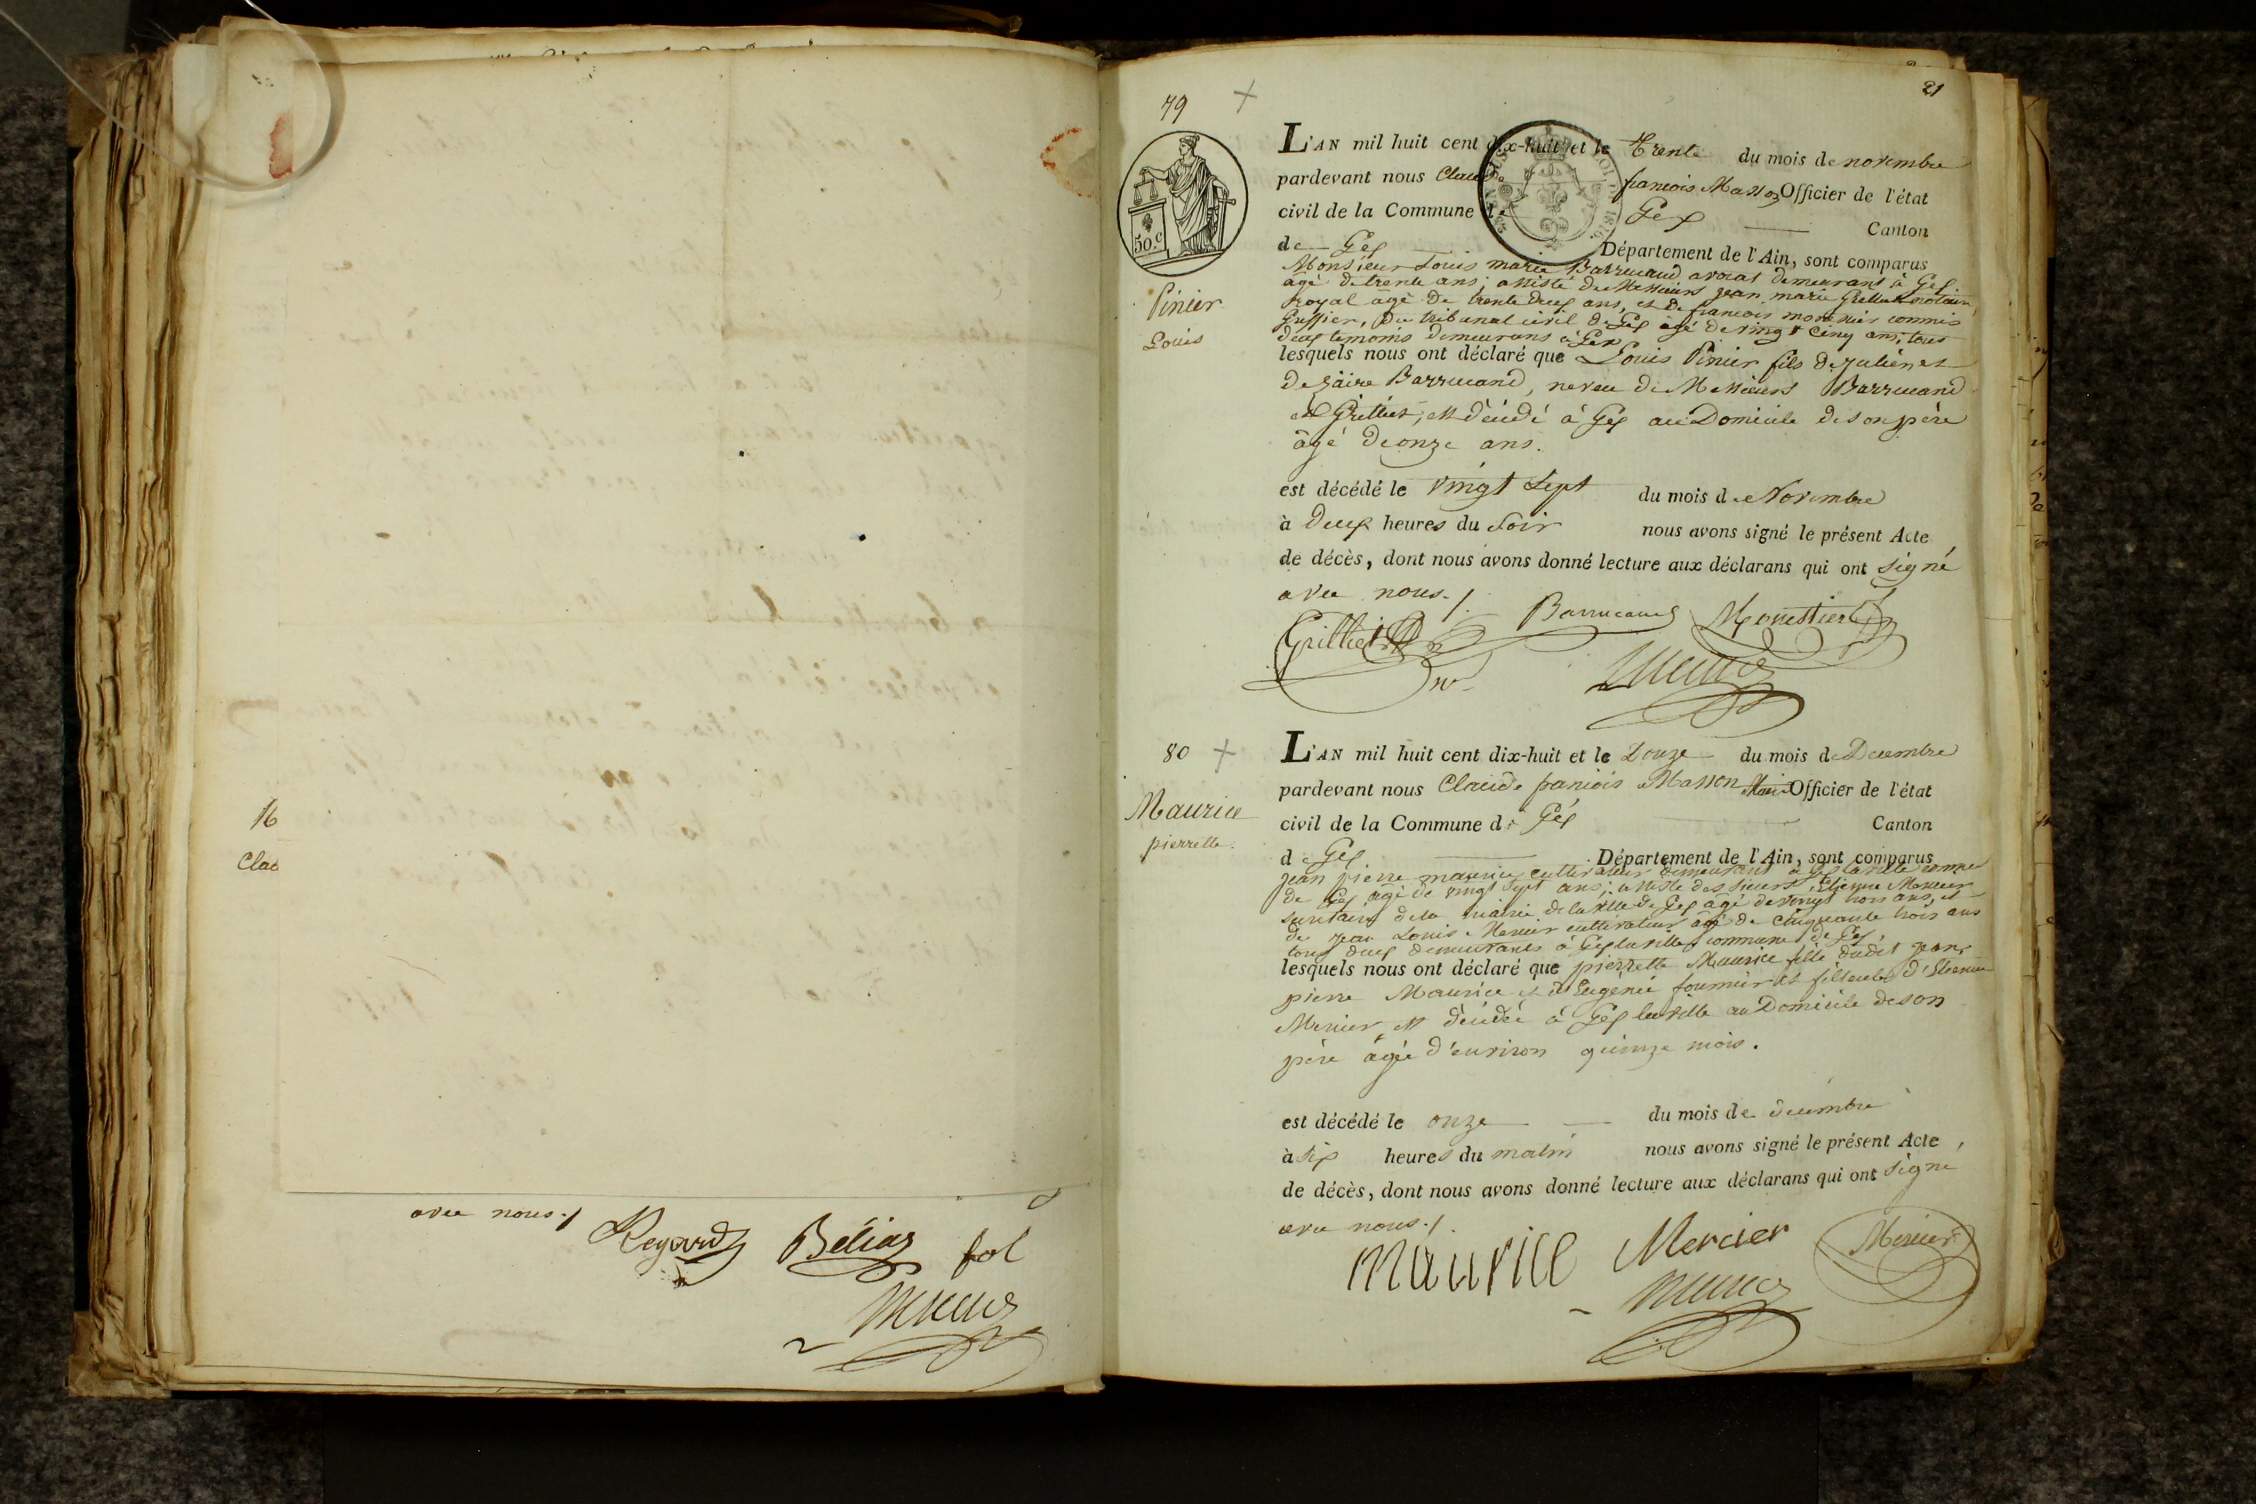 16
Clau
avec nous ./
Regard Béliaz fol
21
79
50.c
Pinier
Louis
L'AN mil huit cent dix-huit et le Trente du mois de novembre
pardevant nous Claude françois Masson Officier de l'état
civil de la Commune de Gex Canton
de Gex Département de l'Ain, sont comparus
Monsieur Louis marie Barrucand avocat demeurant à Gex
âgé de trente ans; assisté de Messieurs jean marie Grilliet notaire
Royal âgé de trente deux ans, et de francois monestier commis
Greffier, du tribunal civil de Gex âgé de vingt cinq ans, tous
deux temoins demeurans à Gex
lesquels nous ont déclaré que Louis Pinier fils de julien et
de Barrucand, neveu de Messieurs Barrucand
et Grilliet, est décédé à Gex au Domicile de son père
âgé de onze ans.
est décédé le vingt Sept du mois de Novembre
à deux heures du Soir nous avons signé le présent Acte
de décès, dont nous avons donné lecture aux déclarans qui ont signé
avec nous ./.
Grilliet Barrucand Monestier
80
Maurice
pierrette.
L'AN mil huit cent dix-huit et le Douze du mois de Decembre
pardevant nous Claude francois Masson Maire Officier de l'état
civil de la Commune de Gex Canton
de Gex Département de l'Ain, sont comparus
jean pierre maurice cultivateur demeurant à Gex la ville commune
de Gex âgé de vingt sept ans; assisté des sieurs Etienne Mercier
secretaire de la mairie de la ville de Gex âgé de vingt trois ans, et
de jean Louis Mercier cultivateur âgé de cinquante trois ans
tous deux demeurants à Gex la ville commune de Gex,
lesquels nous ont déclaré que pierrette Maurice fille dudit jean
pierre Maurice et d'Eugénie fournier et filleule d'Etienne
Mercier, est décédée à Gex la ville au Domicile de son
père âgée d'environ quinze mois.
est décédé le onze du mois de décembre
à six heures du matin nous avons signé le présent Acte
de décès, dont nous avons donné lecture aux déclarans qui ont signé
avec nous ./.
maurice Mercier Mercier